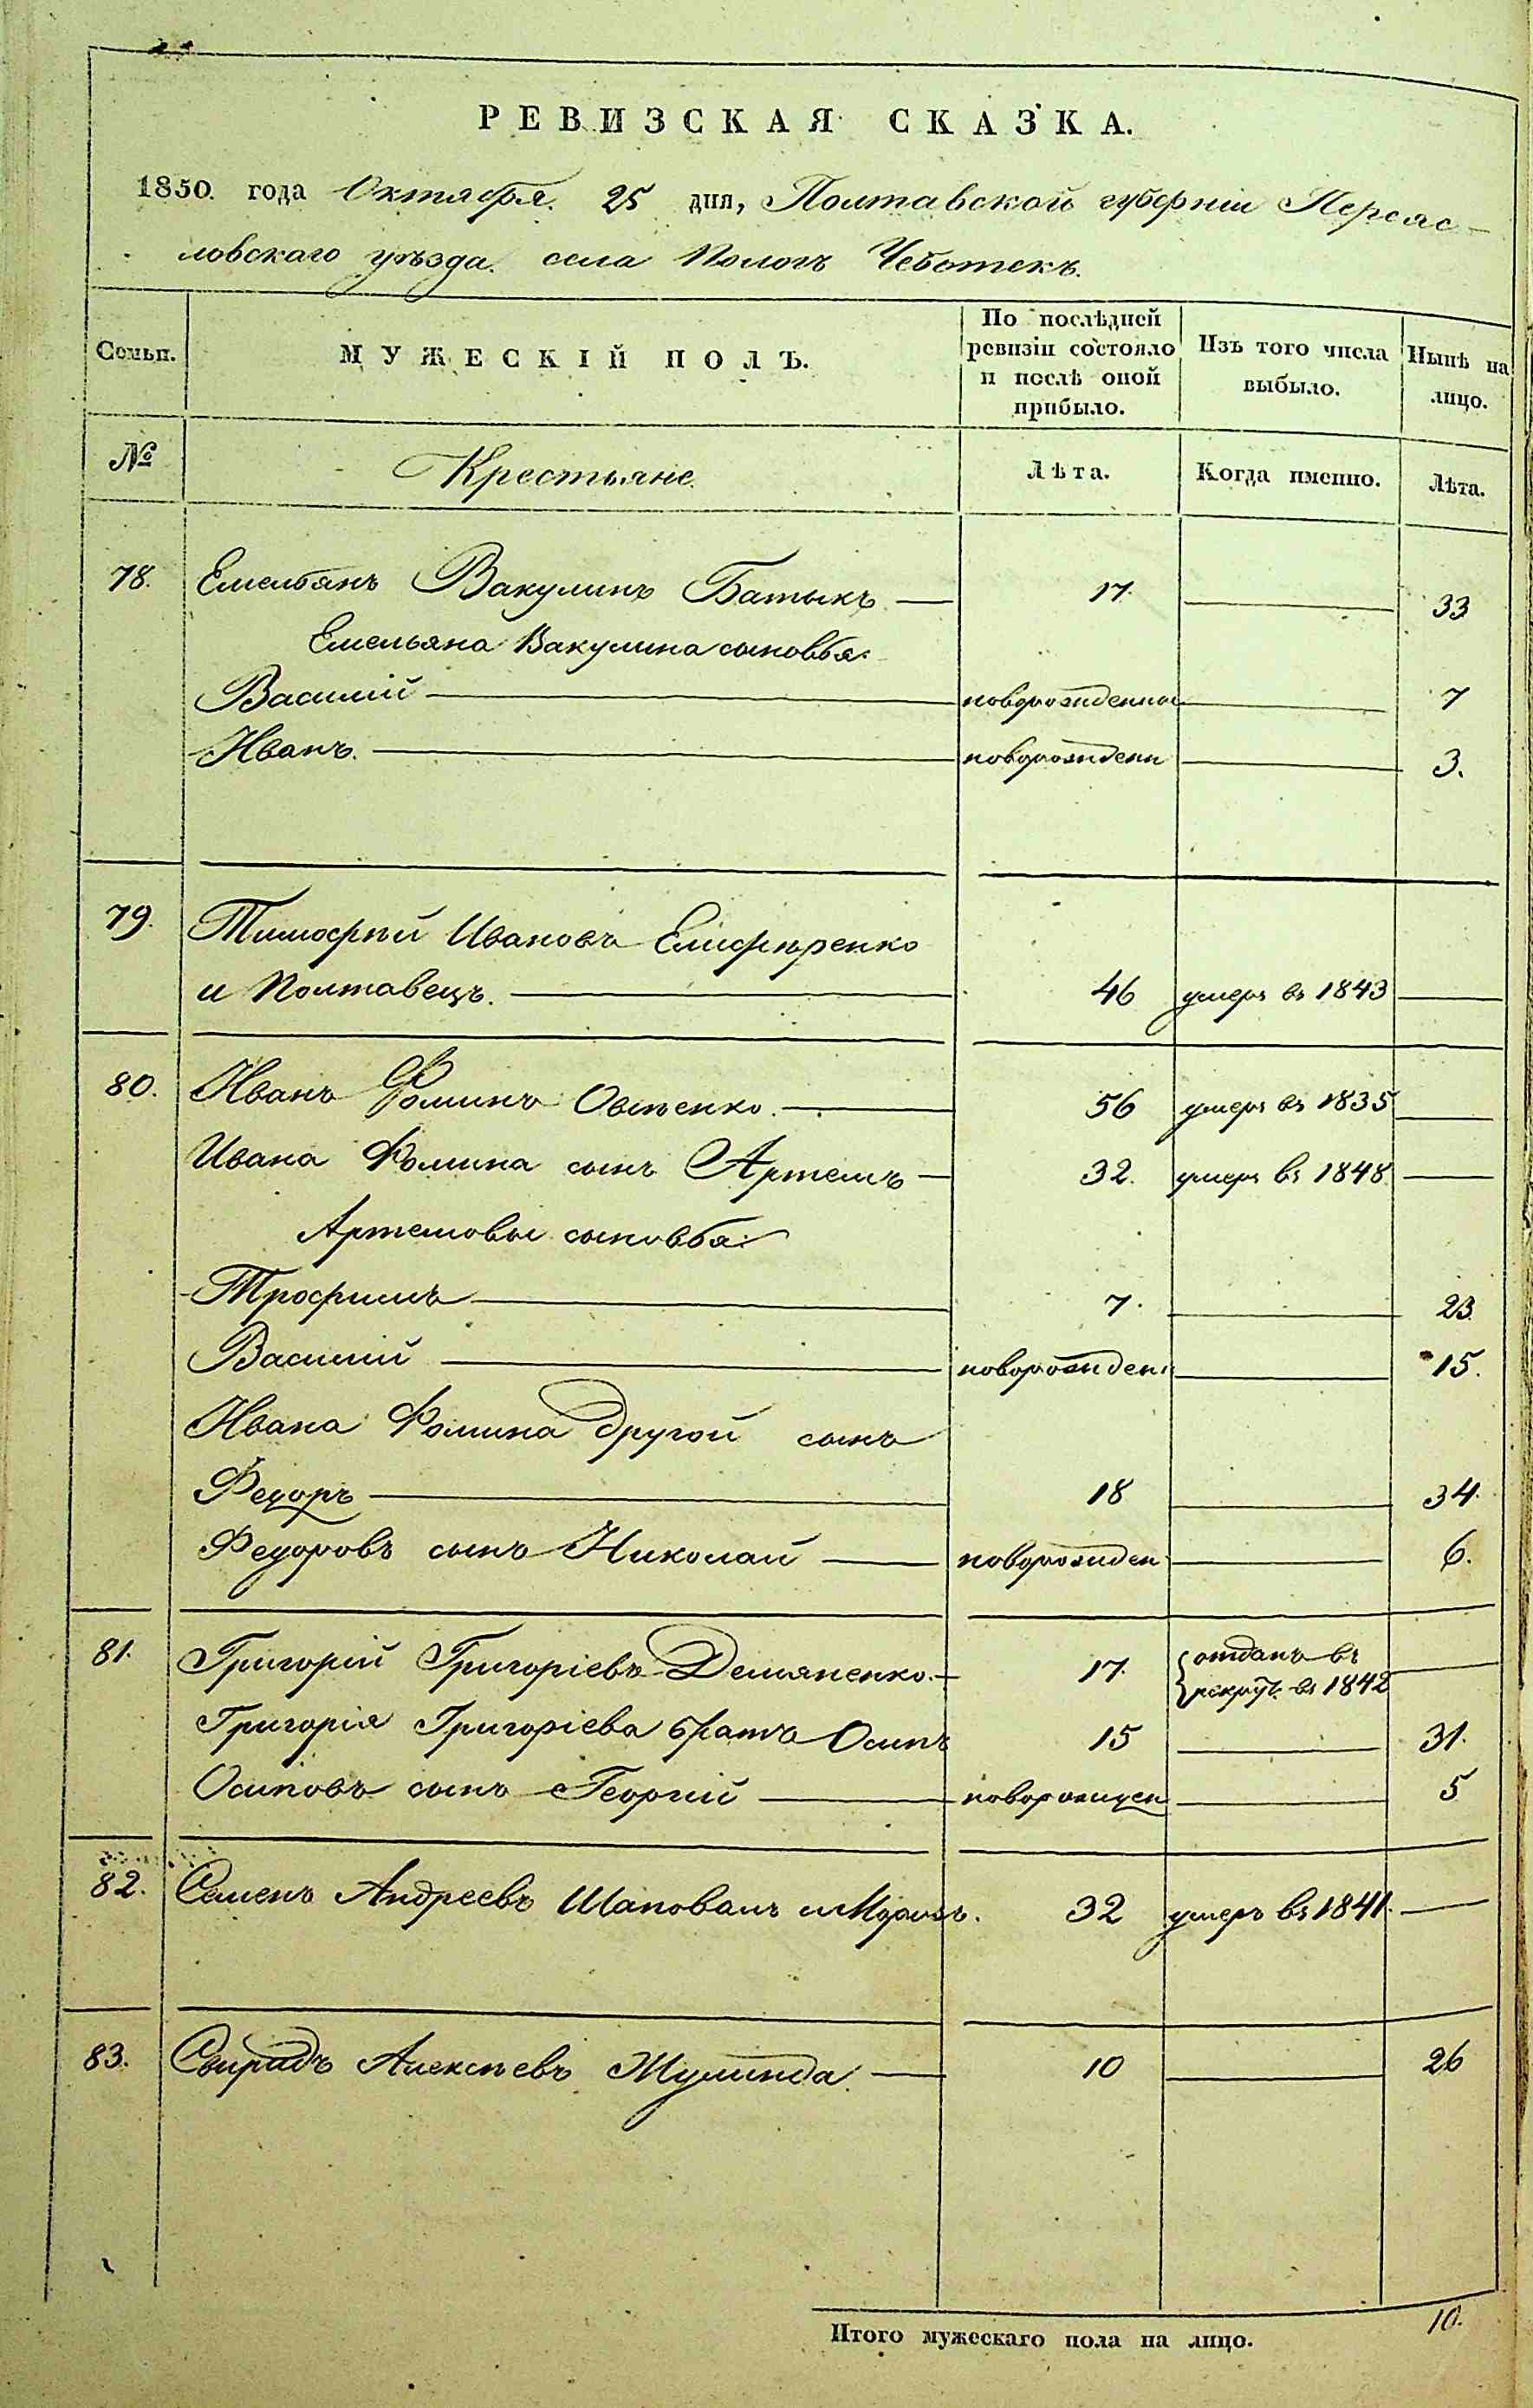 РЕВИЗСКАЯ СКАЗКА.
1850. года Октября 25 дня, Полтавской губерніи Переяс-
ловскаго уѣзда села Пологъ Чеботекъ.
Семьи.
МУЖЕСКІЙ ПОЛЪ.
По послѣдней ревизіи состояло и послѣ оной прибыло.
Изъ того числа выбыло.
Нынѣ на лицо.
№ Крестьяне. Лѣта. Когда именно. Лѣта.
78. Емельянъ Вакулинъ Батыкъ — 17. — 33
Емельяна Вакулина сыновья:
Василій — новорожденный — 7
Иванъ. — новорожден — 3.
79. Тимофѣй Ивановъ
и Полтавецъ. — 46 умеръ въ 1843 —
80. Иванъ Фоминъ — 56 умеръ въ 1835 —
Ивана Фомина сынъ Артемъ — 32. умеръ въ 1848 —
Артемовы сыновья:
Трофимъ — 7. — 23
Василій — новорожден — 15.
Ивана Фомина другой сынъ
Федоръ — 18 — 34.
Федоровъ сынъ Николай — новорожден — 6.
81. Григорій Григоріевъ Демяненко. — 17. отданъ въ
рекрут. въ 1842 —
Григорія Григоріева братъ Осипъ 15 — 31.
Осиповъ сынъ Георгій — новорожден — 5
82. Семенъ Андреевъ Шаповалъ и Морозъ. 32 умеръ въ 1841. —
83. Свиридъ Алексѣевъ Жулинда. — 10 — 26
Итого мужескаго пола на лицо. 10.